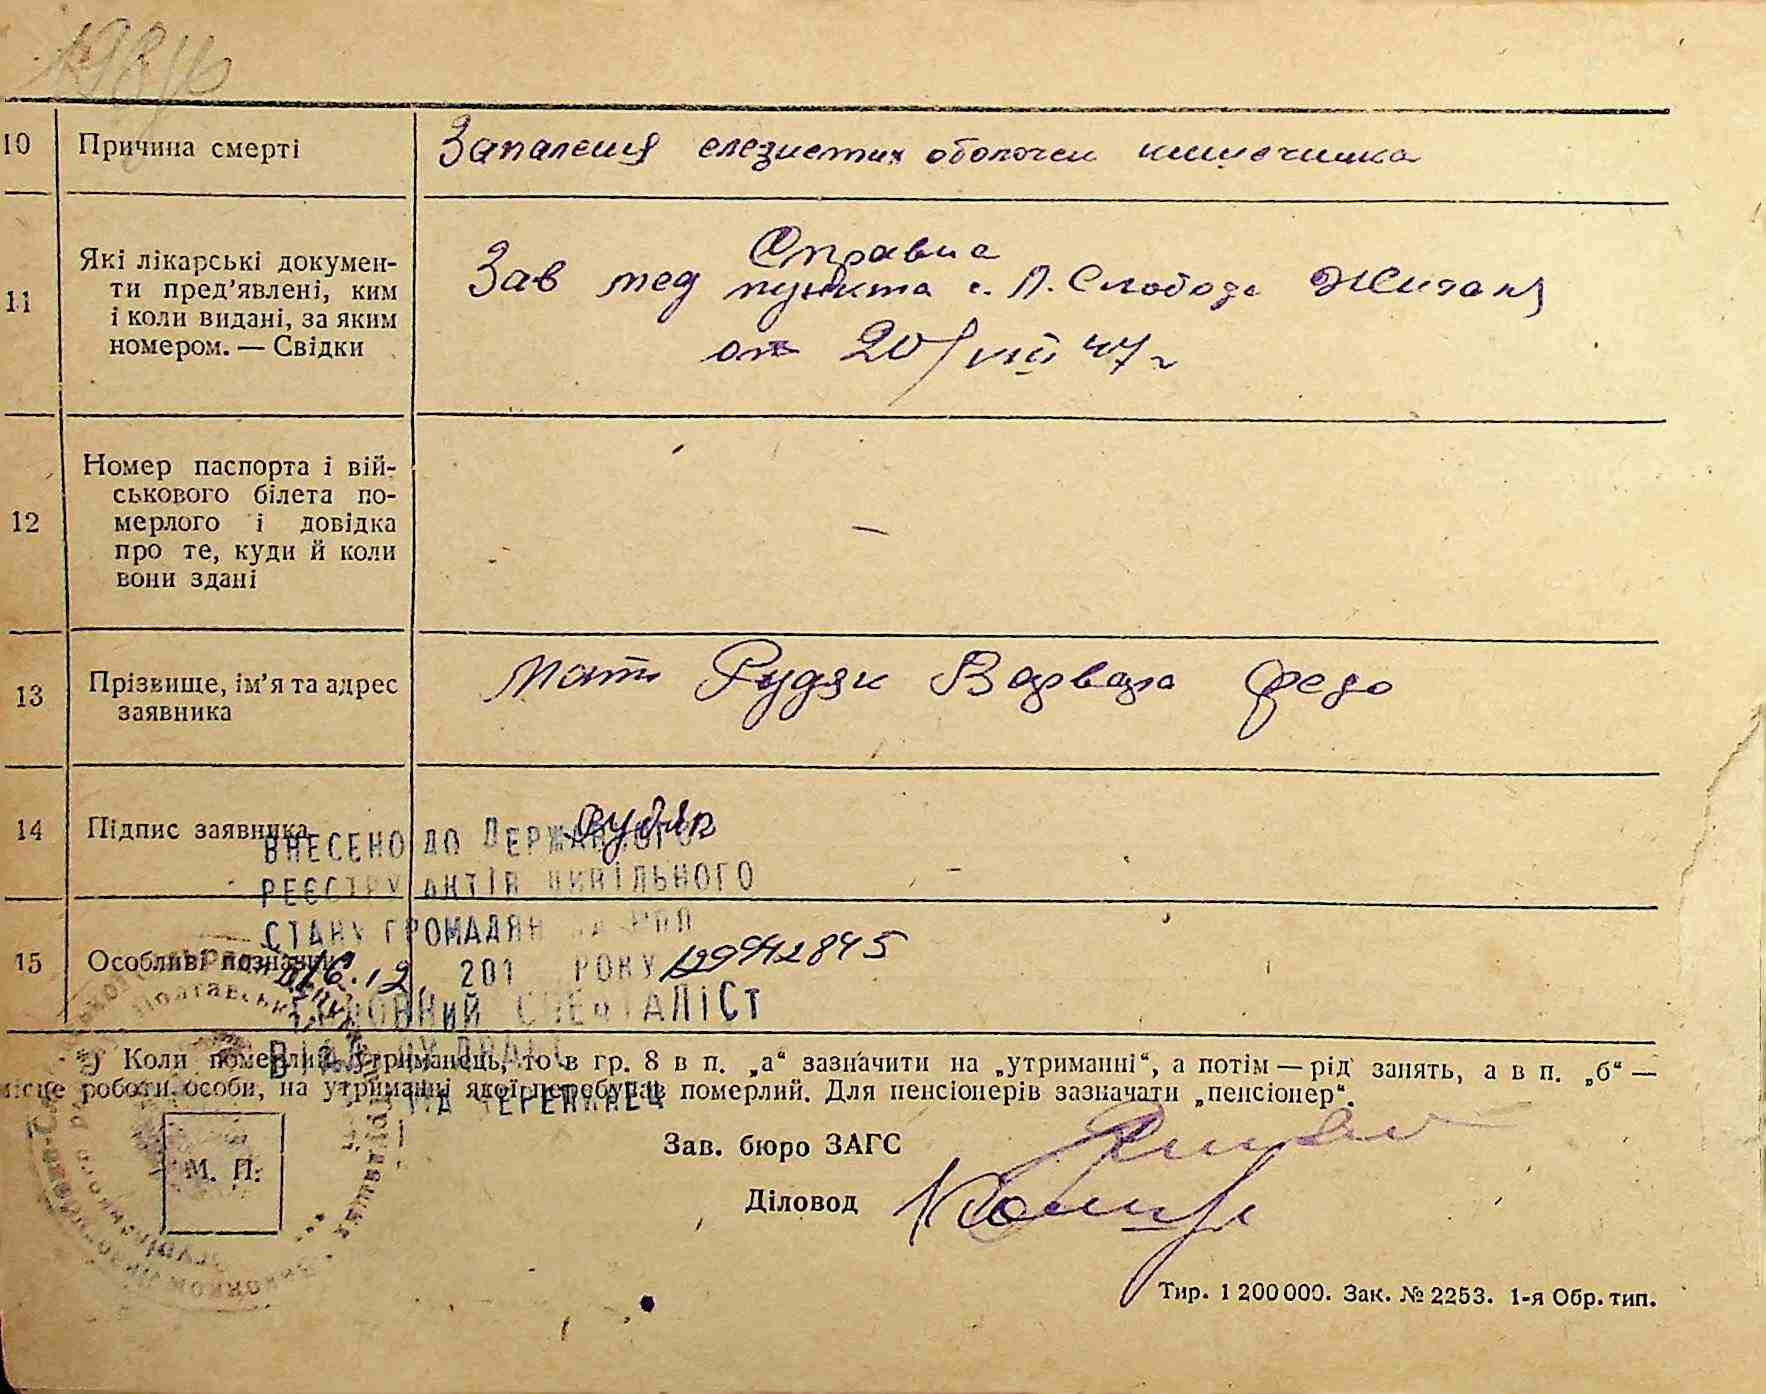 10 Причина смерті Запалення слезистих оболочек кишечника
11 Які лікарські докумен-
ти пред'явлені, ким
і коли видані, за яким
номером. — Свідки
Справка
Зав мед пункта с. Л. Слобода
от 20/VIII 47 г
12 Номер паспорта і вій-
ськового білета по-
мерлого і довідка
про те, куди й коли
вони здані
—
13 Прізвище, ім'я та адрес
заявника
Мати Рудяк Варвара Федо
14 Підпис заявника Рудяк
ВНЕСЕНО ДО ДЕРЖАВНОГО
РЕЄСТРУ АКТІВ ЦИВІЛЬНОГО
СТАНУ ГРОМАДЯН ЗА
15 Особливі позначки
16.12. 201 РОКУ
ГОЛОВНИЙ СПЕЦІАЛІСТ
ВІДДІЛУ ДРАЦС
*) Коли померлий утриманець, то в гр. 8 в п. „а“ зазначити на „утриманні“, а потім — рід занять, а в п. „б“ —
місце роботи особи, на утриманні якої перебував померлий. Для пенсіонерів зазначати „пенсіонер“.
Зав. бюро ЗАГС
М. П.
Діловод
Тир. 1 200 000. Зак. № 2253. 1-я Обр. тип.